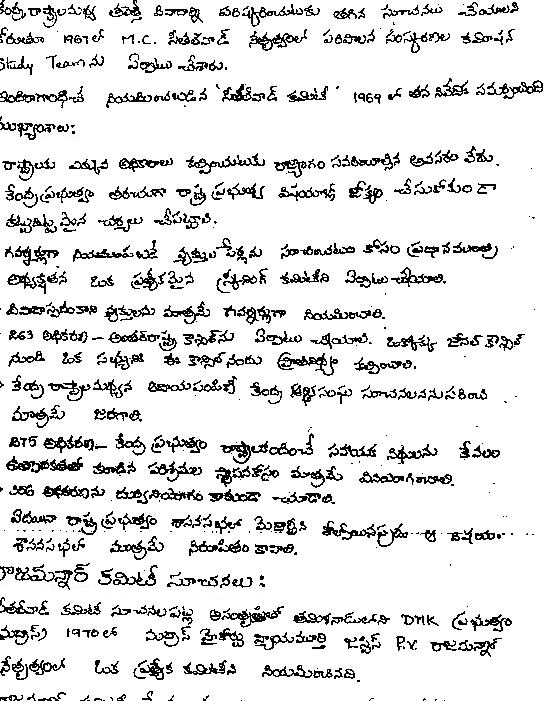 కేంద్ర రాష్ట్రాలమధ్య తలెత్తే వివాదాన్ని పరిష్కరించుటకు తగిన సూచనలు చేయాలని
కోరుతూ 1967లో M.C. సేతల్‌వాడ్ నేతృత్వంలో పరిపాలన సంస్కరణల కమిషన్
Study Team ను ఏర్పాటు చేశారు.
ఇందిరాగాంధీచే నియమించబడిన 'సేతల్‌వాడ్ కమిటీ' 1969 లో తన నివేదిక సమర్పించింది
ముఖ్యాంశాలు:
రాష్ట్రాలకు ఎక్కువ అధికారాలు కల్పించుటకు రాజ్యాంగం సవరించాల్సిన అవసరం లేదు.
కేంద్ర ప్రభుత్వం తరచుగా రాష్ట్ర ప్రభుత్వ విషయాల్లో జోక్యం చేసుకోకుండా
కట్టుదిట్టమైన చర్యలు చేపట్టాలి.
గవర్నర్లుగా నియమింపబడే వ్యక్తుల పేర్లను సూచించుట కోసం ప్రధానమంత్రి
అధ్యక్షతన ఒక ప్రత్యేకమైన స్క్రీనింగ్ కమిటీని ఏర్పాటు చేయాలి.
వివాదాస్పదంకాని వ్యక్తులను మాత్రమే గవర్నర్లుగా నియమించాలి.
263 అధికరణ – అంతర్‌రాష్ట్ర కౌన్సిల్‌ను ఏర్పాటు చేయాలి. ఒక్కొక్క జోనల్ కౌన్సిల్
నుండి ఒక సభ్యునికి ఈ కౌన్సిల్ నందు ప్రాతినిధ్యం కల్పించాలి.
కేంద్ర రాష్ట్రాలమధ్యన ఆదాయపంపిణీ కేంద్ర ఆర్థికసంఘం సూచనలననుసరించి
మాత్రమే జరగాలి.
275 అధికరణ – కేంద్ర ప్రభుత్వం రాష్ట్రాలకందించే సహాయక నిధులను కేవలం
ఉత్పాదకతతో కూడిన పరిశ్రమల స్థాపనకోసం మాత్రమే వినియోగించాలి.
356 అధికరణను దుర్వినియోగం కాకుండా చూడాలి.
ఏదయినా రాష్ట్ర ప్రభుత్వం శాసనసభలో మెజార్టీని కోల్పోయినప్పుడు ఆ విషయం
శాసనసభలో మాత్రమే నిరూపితం కావాలి.
రాజమన్నార్ కమిటీ సూచనలు:
సేతల్‌వాడ్ కమిటీ సూచనలపట్ల అసంతృప్తితో తమిళనాడులోని DMK ప్రభుత్వం
మద్రాస్) 1970 లో మద్రాస్ హైకోర్టు న్యాయమూర్తి జస్టిస్ P.V. రాజమన్నార్
నేతృత్వంలో ఒక ప్రత్యేక కమిటీని నియమించినది.